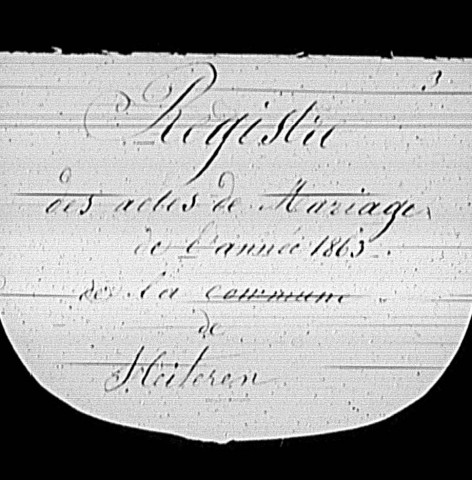 3
Registre
des actes de Mariage
de l'année 1863
de la commune
de
Heiteren